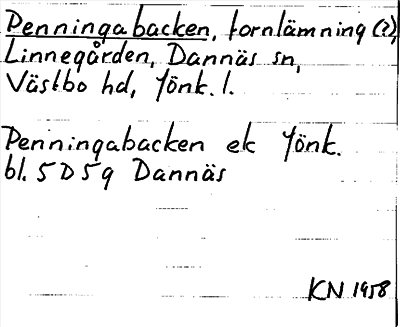 Penningabacken, fornlämning (?),
Linnegården, Dannäs sn,
Västbo hd, Jönk. l.
Penningabacken ek Jönk.
bl. 5 D 5 g Dannäs
KN 1958